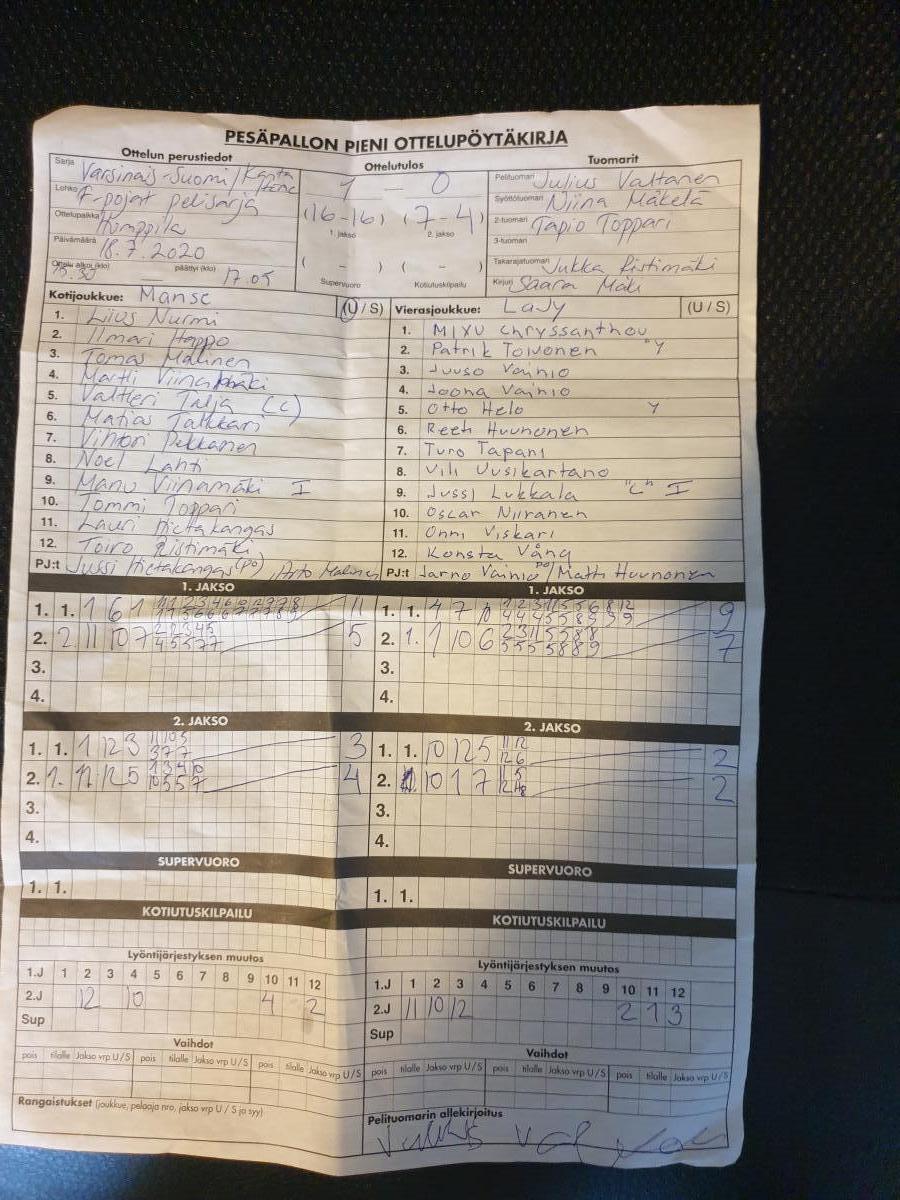 PESÄPALLON PIENI OTTELUPÖYTÄKIRJA
Ottelun perustiedot
Ottelutulos
Tuomarit
Sarja Varsinais-Suomi/Kanta
Lohko F-pojat pelisarja
Ottelupaikka Humppila
Päivämäärä 18.7.2020
Ottelu alkoi (klo) 15.30 päättyi (klo) 17.05
1 - 0
(16-16) (7-4)
1. jakso 2. jakso
( - ) ( - )
Supervuoro Kotiutuskilpailu
Pelituomari Julius Valtanen
Syöttötuomari Niina Mäkelä
2-tuomari Tapio Toppari
3-tuomari
Takarajatuomari Jukka Ristimäki
Kirjuri Saara Mäki
Kotijoukkue: Manse (U / S)
1. Lius Nurmi
2. Ilmari Happo
3. Tomas Malinen
4. Martti
5. Valtteri Talja (C)
6. Matias Talkkari
7. Vihtori Pekkanen
8. Noel Lahti
9. Manu Viinamäki I
10. Tommi Toppari
11. Lauri Hietakangas
12. Toivo Ristimäki
PJ:t Jussi Hietakangas (PO), Arto Malinen
Vierasjoukkue: LaJy (U / S)
1. Mixu Chryssanthou
2. Patrik Toivonen Y
3. Juuso Vainio
4. Joona Vainio
5. Otto Helo Y
6. Huunonen
7. Turo Tapani
8. Vili Uusikartano
9. Jussi Lukkala "C" I
10. Oscar Niiranen
11. Onni Viskari
12. Konsta Vång
PJ:t Jarno Vainio PO / Matti Huunonen
1. JAKSO
1. 1. 1 6 1 11
2. 2. 11 10 7 5
3.
4.
1. JAKSO
1. 1. 4 7 10 9
2. 1. 1 10 6 7
3.
4.
2. JAKSO
1. 1. 1 12 3 3
2. 1. 11 12 5 4
3.
4.
2. JAKSO
1. 1. 10 12 5 2
2. 10 1 7 2
3.
4.
SUPERVUORO
1. 1.
SUPERVUORO
1. 1.
KOTIUTUSKILPAILU
KOTIUTUSKILPAILU
Lyöntijärjestyksen muutos
1.J 1 2 3 4 5 6 7 8 9 10 11 12
2.J 12 10 4 2
Sup
Lyöntijärjestyksen muutos
1.J 1 2 3 4 5 6 7 8 9 10 11 12
2.J 11 10 12 2 1 3
Sup
Vaihdot
pois tilalle Jakso vrp U / S pois tilalle Jakso vrp U / S pois tilalle Jakso vrp U / S
Vaihdot
pois tilalle Jakso vrp U / S pois tilalle Jakso vrp U / S pois tilalle Jakso vrp U / S
Rangaistukset (joukkue, pelaaja nro, jakso vrp U / S ja syy)
Pelituomarin allekirjoitus